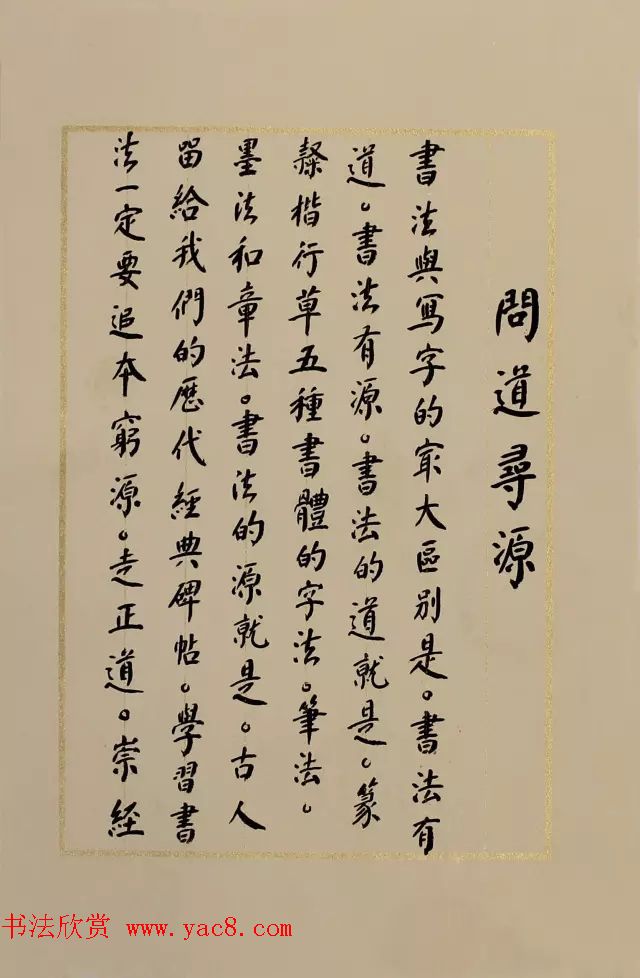 問道尋源
書法與寫字的㝡大區别是。書法有
道。書法有源。書法的道就是。篆
隸楷行草五種書體的字法。筆法。
墨法和章法。書法的源就是。古人
留給我們的歷代經典碑帖。學習書
法一定要追本窮源。走正道。崇經
书法欣赏 www.yac8.com